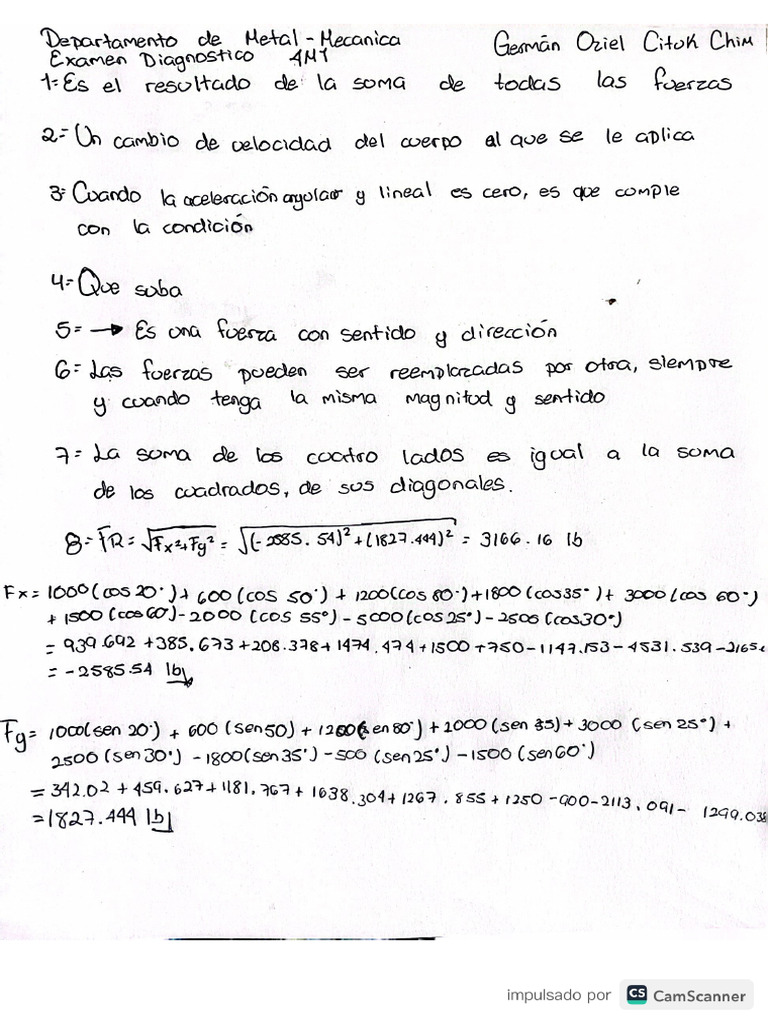 Departamento de Metal-Mecanica Germán Oziel Cituk Chim
Examen Diagnostico 4M1
1= Es el resultado de la soma de todas las fuerzas
2= Un cambio de velocidad del cuerpo al que se le aplica
3= Cuando la aceleración angular y lineal es cero, es que cumple
con la condición
4= Que suba
5= → Es una fuerza con sentido y dirección
6= Las fuerzas pueden ser reemplazadas por otra, siempre
y cuando tenga la misma magnitud y sentido
7= La suma de los cuatro lados es igual a la suma
de los cuadrados, de sus diagonales.
8= FR = √Fx²+Fy² = √(-2585.54)²+(1827.444)² = 3166.16 lb
Fx = 1000(cos20°)+600(cos 50°)+1200(cos80°)+1800(cos35°)+3000(cos 60°)
+1500(cos60°)-2000(cos 55°)-5000(cos25°)-2500(cos30°)
= 939.692+385.673+208.378+1474.474+1500+750-1147.153-4531.539-2165
= -2585.54 lb
Fy= 1000(sen 20°)+600(sen50)+1200(sen80°)+2000(sen 55)+3000(sen 25°)+
2500(sen30°)-1800(sen35°)-500(sen25°)-1500(sen60°)
= 342.02+459.627+1181.767+1638.304+1267.855+1250-900-2113.091-1299.038
=1827.444 lb
impulsado por CS CamScanner